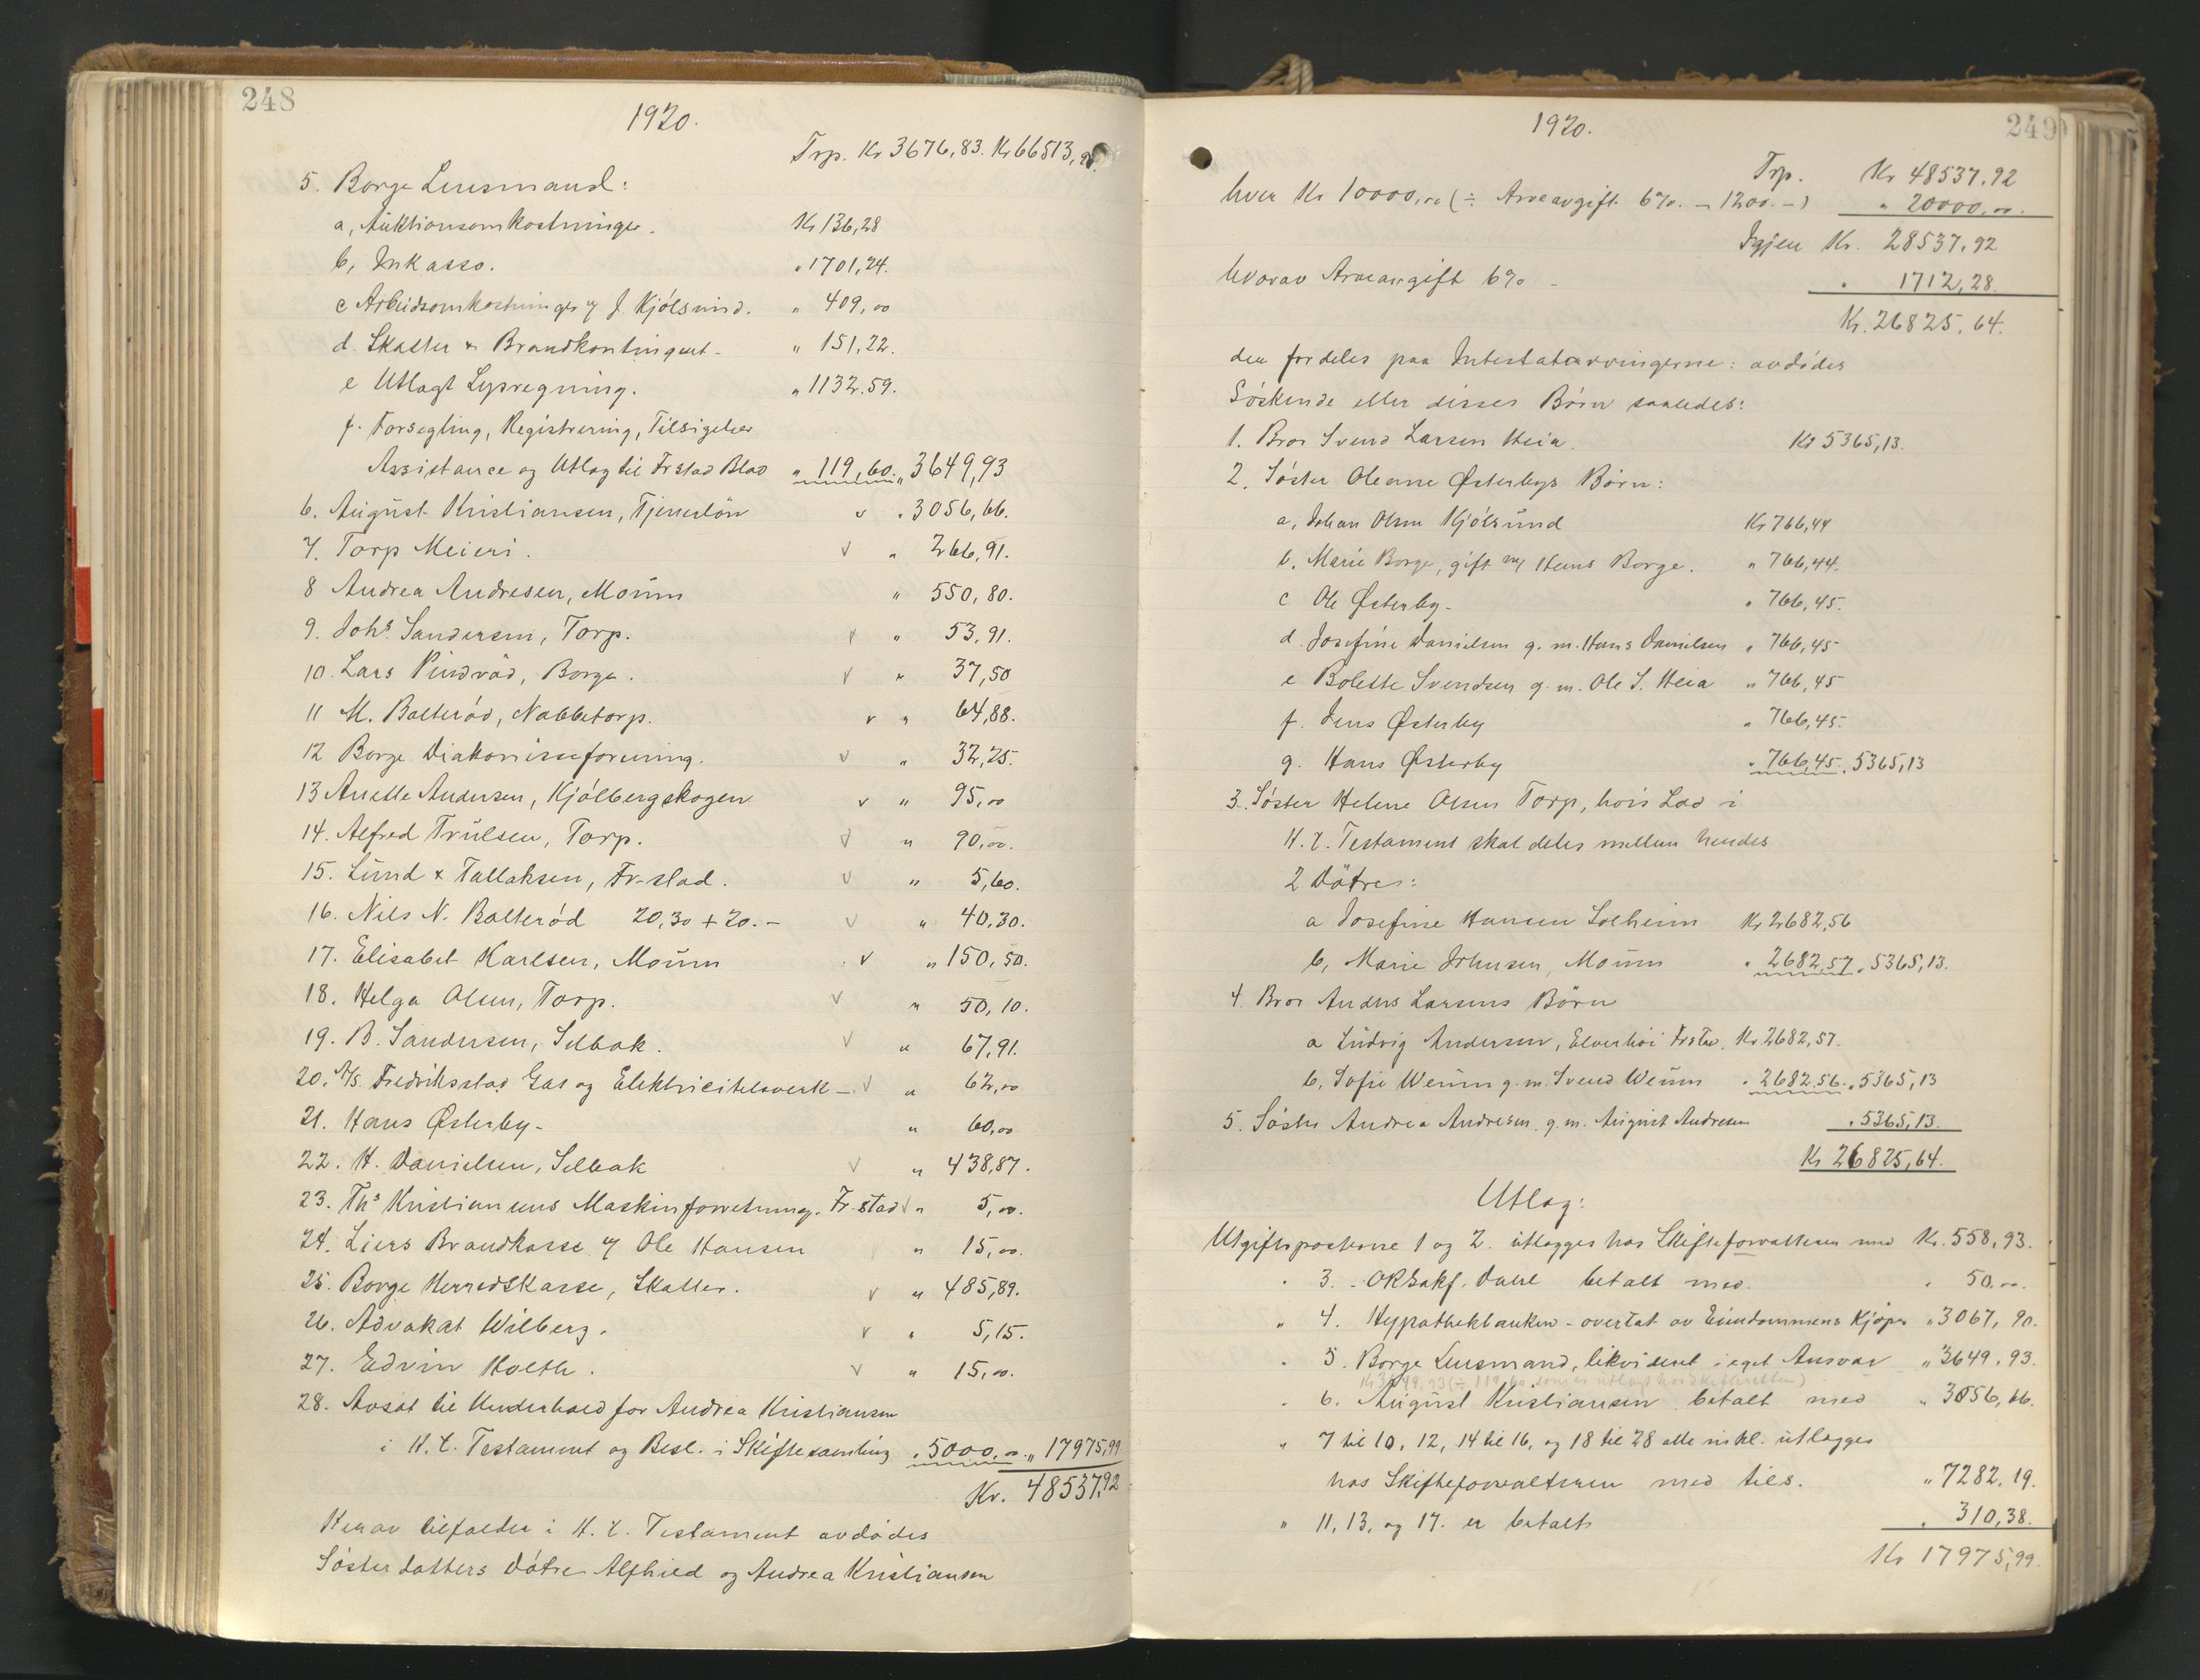 248
1920.
Trp. Kr 3676,83. Kr 66513,91
5. Borge Lensmand:
a, Auktionsomkostninger. Kr 136,28
b, Inkasso. " 1701,24.
c Arbeidsomkostninger v/ J. Kjölsund. " 409,00
d. Skatter & Brandkontingent - " 151,22.
e Utlagt Lysregning. " 1132.59.
f. Forsegling, Registrering, Tilsigelser
Assistance og Utlag til Frstad Blad " 119,60. " 3649,93
6. August Kristiansen, Tjenerlön v " 3056,66.
7. Torp Meieri. v " 266,91.
8 Andrea Andresen, Moum " 550,80.
9. Johs. Sandersen, Torp. v " 53,91.
10. Lars Pindröd, Borge. v " 37,50
11 M. Balteröd, Nabbetorp. v " 64,88.
12 Borge Diakonisseforening. v " 32,25.
13 Anette Andersen, Kjölbergskogen v " 95,00
14. Alfred Trulsen, Torp. v " 90,00.
15. Lund & Tallaksen, Fr-stad. v " 5,60.
16. Nils N. Balteröd 20,30 + 20.- v " 40,30.
17. Elisabet Karlsen, Moum v " 150,50.
18. Helga Olsen, Torp. v " 50,10.
19. B. Sandersen, Selbak. v " 67,91.
20. A/s. Fredriksstad Gas og Elektricitetsverk - v " 62,00
21. Hans Østerby - " 60,00
22. H. Danielsen, Selbak v " 438,87.
23. Ths Kristiansens Maskinforretning. Fr.stad v " 5,00.
24. Liers Brandkasse v/ Ole Hansen " 15,00.
25. Borge Herredskasse, Skatter. v " 485,89.
26. Advokat Wilberg. v " 5,15.
27. Edvin Holth. v " 15,00.
28. Avsat til Underhold for Andrea Kristiansen
i H.t. Testament og Besl. i Skiftesamling " 5000,00. " 17975,99
Kr. 48537,92
Herav tilfalder i H.t. Testament avdödes
Söster datters Dötre Alfhild og Andrea Kristiansen
249
1920.
Trp. Kr 48537,92
hver Kr 10000,00 (÷ Arveavgift 6% - 1200.-) " 20000,00.
Igjen Kr. 28537,92
hvorav Arveavgift 6% - " 1712,28.
Kr. 26825,64.
der fordeles paa Intestatarvingerne: avdödes
Söskende eller disses Börn saaledes:
1. Bror Svend Larsen Heia. Kr 5365,13.
2. Söster Oleane Østerbys Börn:
a, Johan Olsen Kjölsund Kr 766,44
b. Marie Borge, gift m/ Hans Borge. " 766,44.
c Ole Østerby - " 766,45.
d. Josefine Danielsen g. m. Hans Danielsen " 766,45
e Bolette Svendsen g. m. Ole S. Heia " 766,45
f. Jens Østerby " 766,45.
g. Hans Østerby " 766,45. " 5365,13
3. Söster Helene Olsen Torp, hvis Lod i
H.t. Testament skal deles mellem hendes
2 Dötre:
a Josefine Hansen Solheim Kr 2682,56
b, Marie Johnsen, Moum " 2682,57. " 5365,13.
4. Bror Anders Larsens Börn
a Ludvig Andersen, Elverhöi Frstad. Kr 2682,57.
b, Sofie Werum g. m. Svend Werum " 2682,56. " 5365,13
5. Söster Andrea Andresen g. m. August Andresen " 5365,13.
Kr 26825,64.
Utlæg:
Utgiftsposterne 1 og 2. utlægges hos Skifteforvalteren med Kr. 558,93.
" 3. - ORsakf. Dahl betalt med. " 50,00.
" 4. Hypothekbanken - overtat av Eiendommens Kjöper " 3067,90.
" 5. Borge Lensmand, likvideret i eget Ansvar " 3649,93.
Kr 3649,93 (÷ 119,60 som er utlagt hos Skifteretten)
" 6. August Kristiansen betalt med " 3056,66.
" 7 til 10, 12, 14 til 16, og 18 til 28 alle inkl. utlægges
hos Skifteforvalteren med tils. " 7282,19.
" 11, 13, og 17. er betalt " 310,38.
Kr 17975,99.